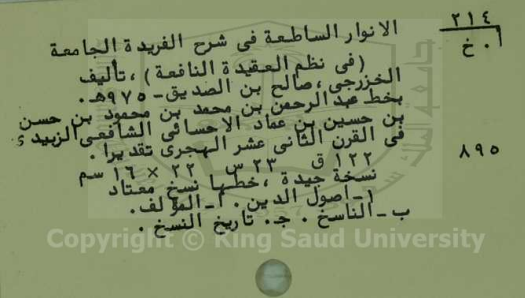 ٢١٤
أ . خ
الانوار الساطعة فى شرح الفريدة الجامعة
(فى نظم العقيدة النافعة) ، تأليف
الخزرجى ، صالح بن الصديق - ٩٧٥هـ .
بخط عبد الرحمن بن محمد بن محمود بن حسن
بن حسين بن عماد الاحسائى الشافعى الزبيدى
فى القرن الثانى عشر الهجرى تقديرا .
٨٩٥
١٢٢ ق ٢٣ س ٢٢ × ١٦ سم
نسخة جيدة ، خطها نسخ معتاد
١ - أصول الدين . أ - المؤلف .
ب - الناسخ . جـ . تاريخ النسخ .
Copyright © King Saud University